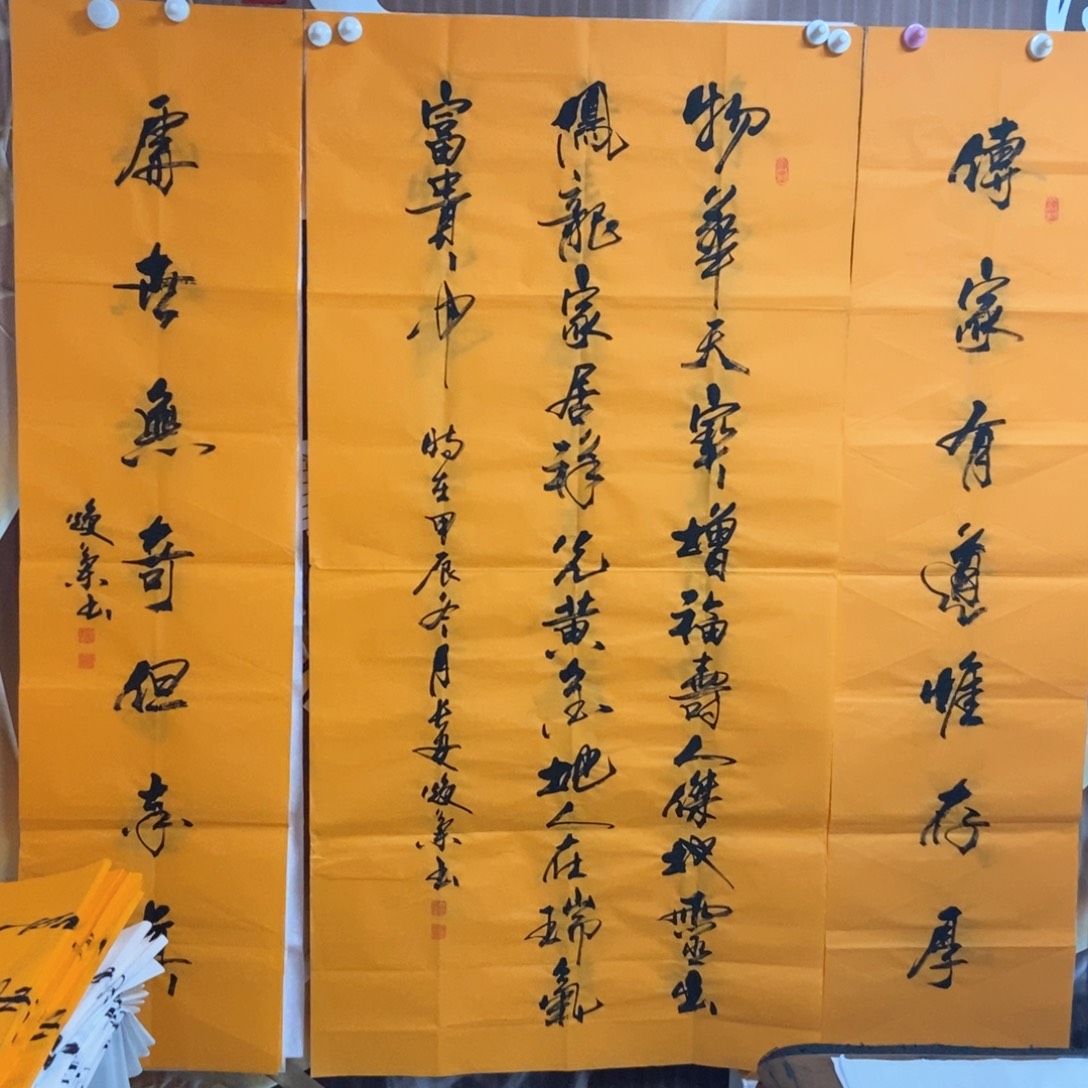 傳家有道惟存厚
物華天寶增福壽人傑地靈出
鳳龍家居祥光黃金地人在瑞氣
富貴中 時在甲辰冬月長安書
處世無奇但率
書